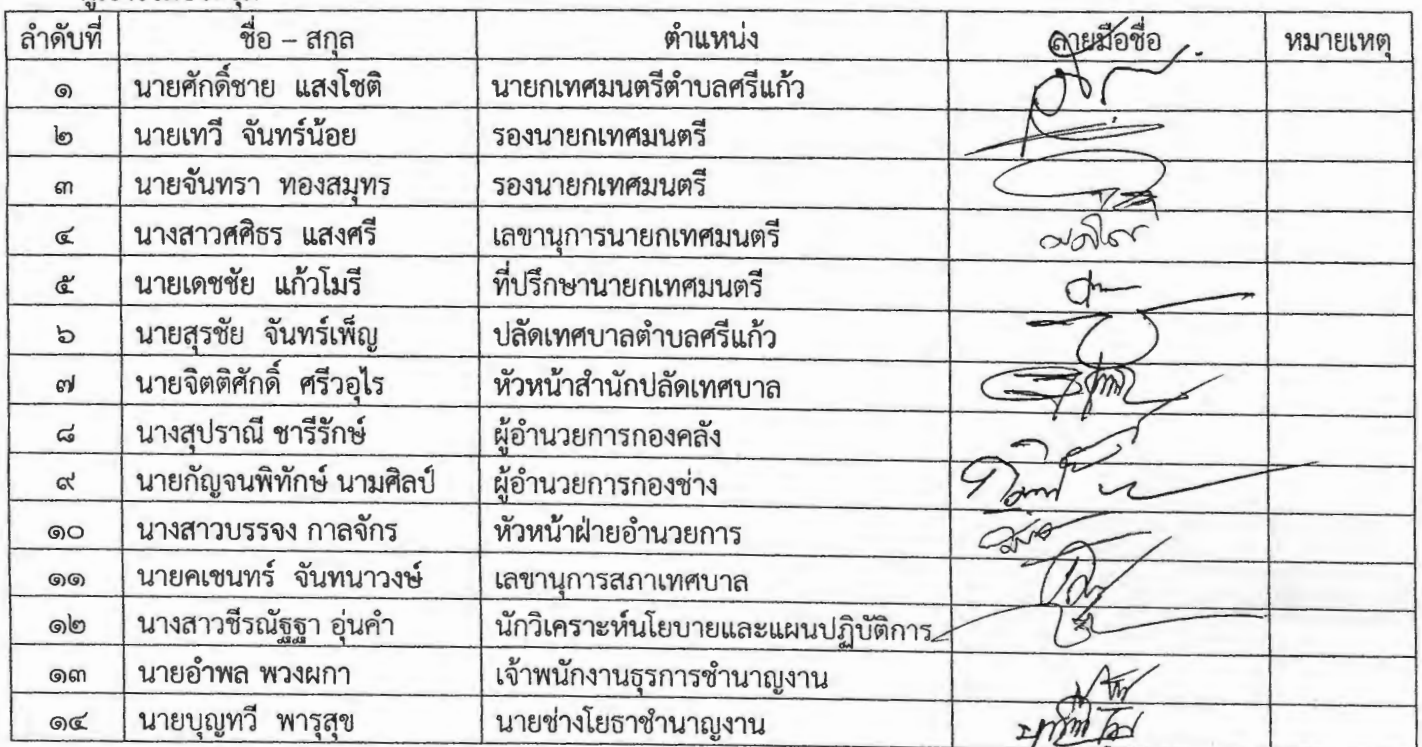 ลำดับที่ ชื่อ – สกุล ตำแหน่ง ลายมือชื่อ หมายเหตุ
๑ นายศักดิ์ชาย แสงโชติ นายกเทศมนตรีตำบลศรีแก้ว
๒ นายเทวี จันทร์น้อย รองนายกเทศมนตรี
๓ นายจันทรา ทองสมุทร รองนายกเทศมนตรี
๔ นางสาวศศิธร แสงศรี เลขานุการนายกเทศมนตรี
๕ นายเดชชัย แก้วโมรี ที่ปรึกษานายกเทศมนตรี
๖ นายสุรชัย จันทร์เพ็ญ ปลัดเทศบาลตำบลศรีแก้ว
๗ นายจิตติศักดิ์ ศรีวอุไร หัวหน้าสำนักปลัดเทศบาล
๘ นางสุปราณี ชารีรักษ์ ผู้อำนวยการกองคลัง
๙ นายกัญจนพิทักษ์ นามศิลป์ ผู้อำนวยการกองช่าง
๑๐ นางสาวบรรจง กาลจักร หัวหน้าฝ่ายอำนวยการ
๑๑ นายคเชนทร์ จันทนาวงษ์ เลขานุการสภาเทศบาล
๑๒ นางสาวชีรณัฐฐา อุ่นคำ นักวิเคราะห์นโยบายและแผนปฏิบัติการ
๑๓ นายอำพล พวงผกา เจ้าพนักงานธุรการชำนาญงาน
๑๔ นายบุญทวี พารุสุข นายช่างโยธาชำนาญงาน